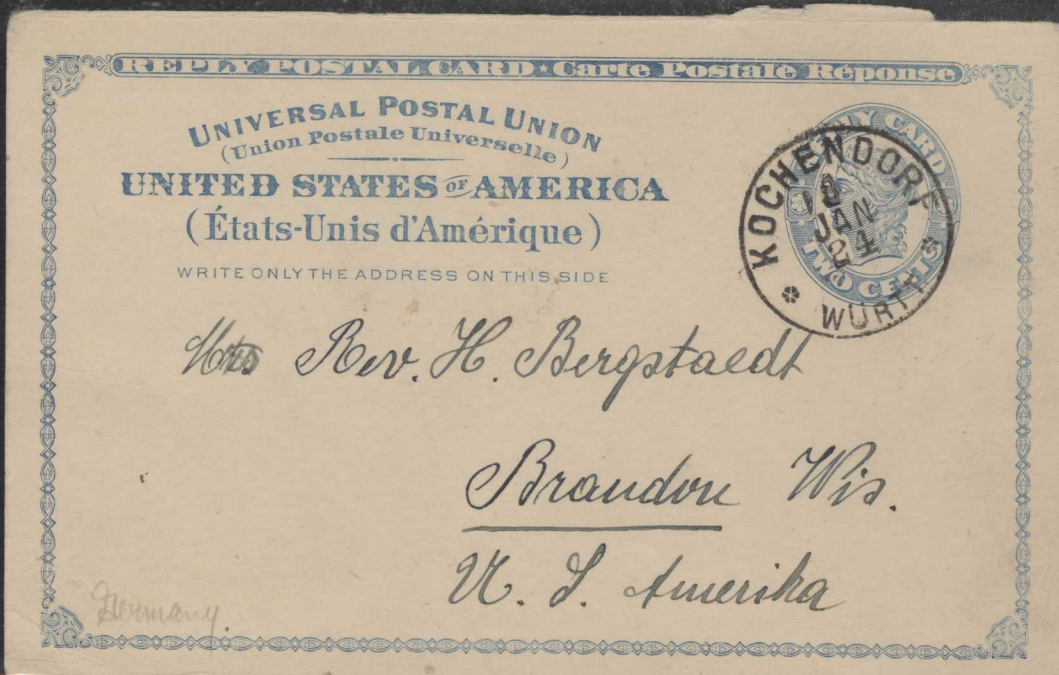 REPLY POSTAL CARD ★ Carte Postale Réponse
UNIVERSAL POSTAL UNION
(Union Postale Universelle)
UNITED STATES OF AMERICA
(États-Unis d'Amérique)
WRITE ONLY THE ADDRESS ON THIS SIDE
REPLY CARD
TWO CENTS
KOCHENDORF
JAN
24
WÜRTT
Mrs Rev. H. Bergstaedt
Brandon Wis.
U. S. Amerika
Germany.